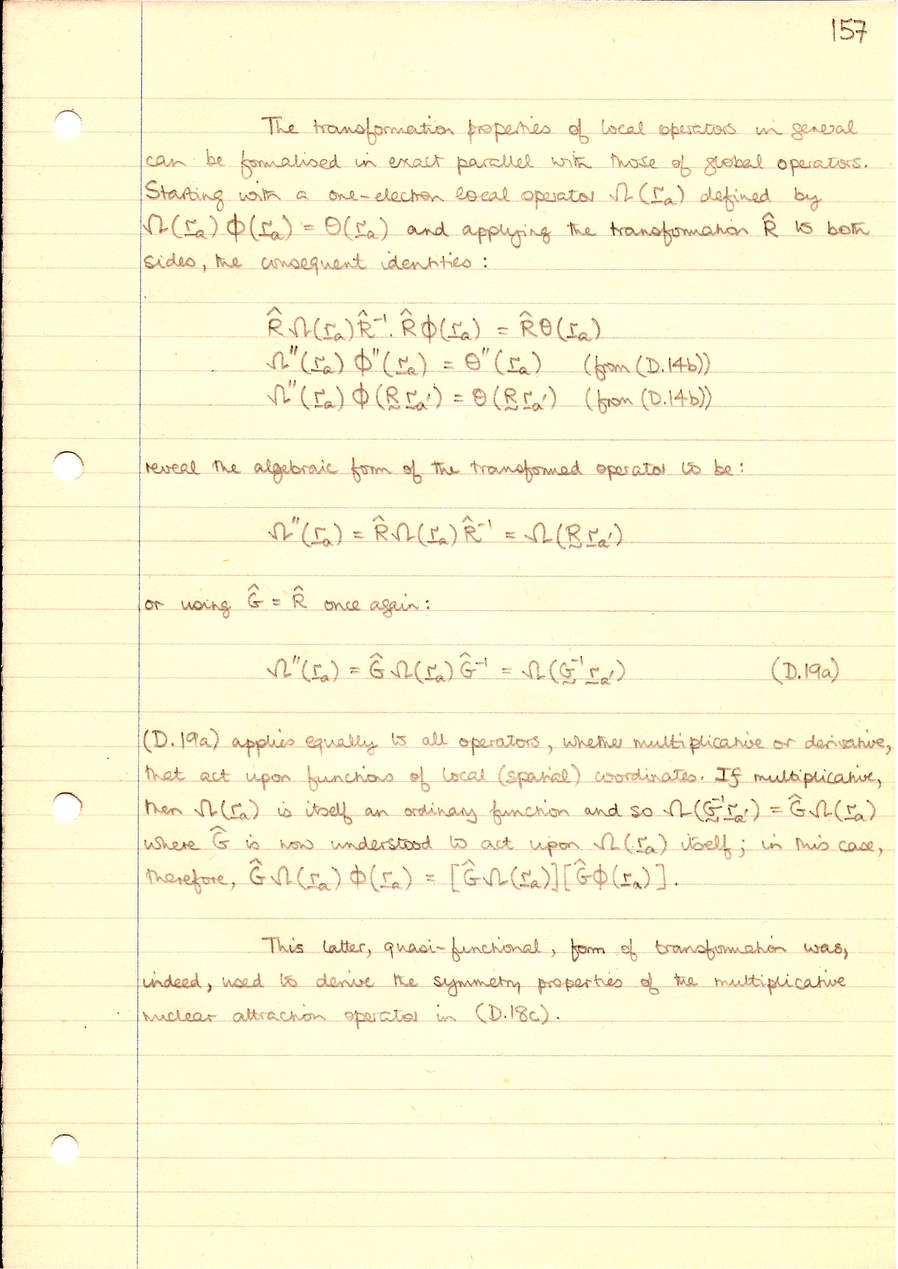 157
The transformation properties of local operators in general
can be formalised in exact parallel with those of global operators.
Starting with a one-electron local operator Ω(r̲ₐ) defined by
Ω(r̲ₐ) ϕ(r̲ₐ) = Θ(r̲ₐ) and applying the transformation R̂ to both
sides, the consequent identities :
R̂ Ω(r̲ₐ) R̂⁻¹. R̂ ϕ(r̲ₐ) = R̂ Θ(r̲ₐ)
Ω″(r̲ₐ) ϕ″(r̲ₐ) = Θ″(r̲ₐ) (from (D.14b))
Ω″(r̲ₐ) ϕ(R̰ r̲ₐ′) = Θ(R̰ r̲ₐ′) (from (D.14b))
reveal the algebraic form of the transformed operator to be :
Ω″(r̲ₐ) = R̂ Ω(r̲ₐ) R̂⁻¹ = Ω(R̰ r̲ₐ′)
or using Ĝ = R̂ once again :
Ω″(r̲ₐ) = Ĝ Ω(r̲ₐ) Ĝ⁻¹ = Ω(G̰⁻¹ r̲ₐ′) (D.19a)
(D.19a) applies equally to all operators, whether multiplicative or derivative,
that act upon functions of local (spatial) coordinates. If multiplicative,
then Ω(r̲ₐ) is itself an ordinary function and so Ω(G̰⁻¹ r̲ₐ′) = Ĝ Ω(r̲ₐ)
where Ĝ is now understood to act upon Ω(r̲ₐ) itself ; in this case,
therefore, Ĝ Ω(r̲ₐ) ϕ(r̲ₐ) = [Ĝ Ω(r̲ₐ)][Ĝ ϕ(r̲ₐ)].
This latter, quasi-functional, form of transformation was,
indeed, used to derive the symmetry properties of the multiplicative
nuclear attraction operator in (D.18c).